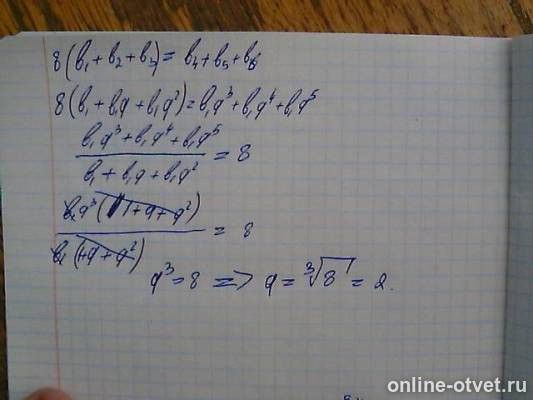 8(b₁+b₂+b₃)=b₄+b₅+b₆
8(b₁+b₁q+b₁q²)=b₁q³+b₁q⁴+b₁q⁵
b₁q³+b₁q⁴+b₁q⁵
b₁+b₁q+b₁q² = 8
b₁q³(1+q+q²)
b₁(1+q+q²) = 8
q³=8 => q=∛8=2.
online-otvet.ru